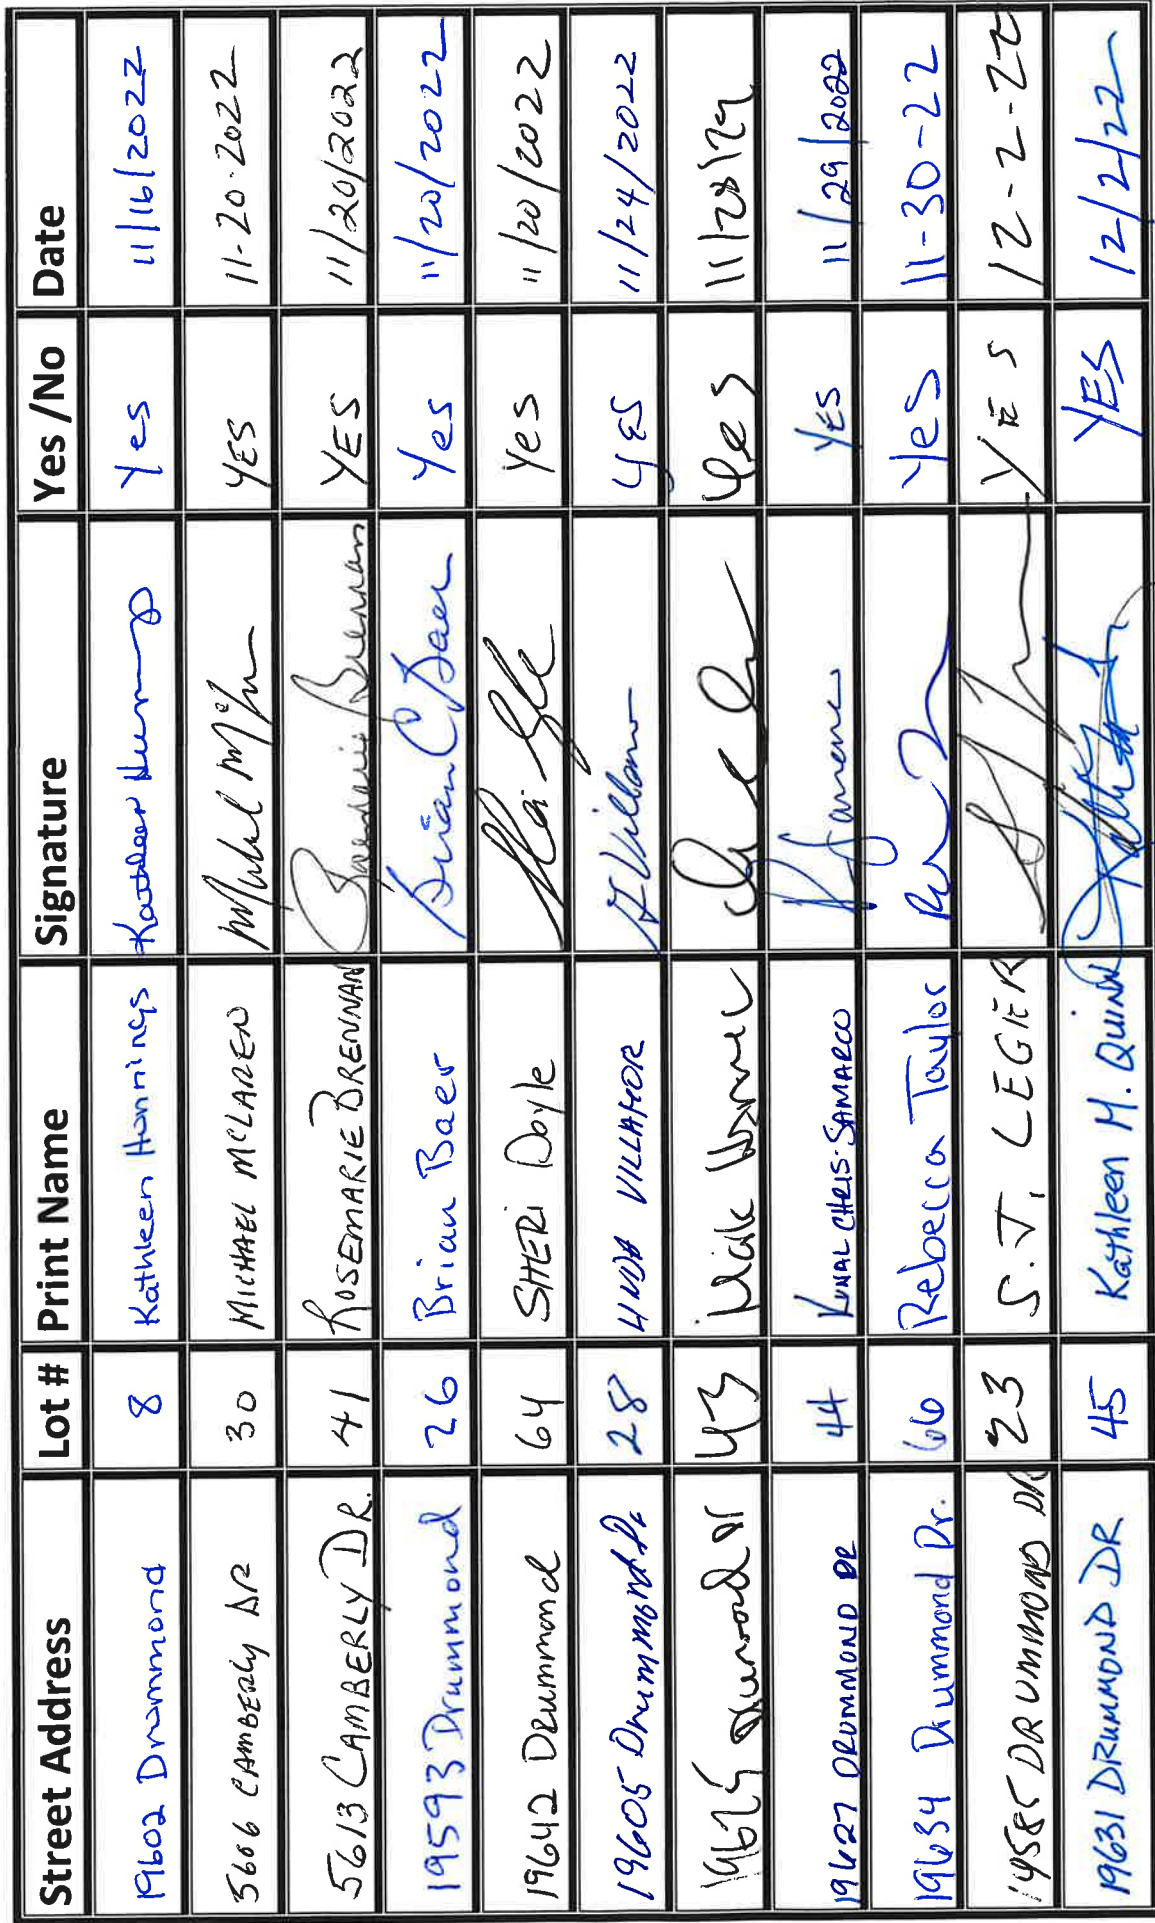 Street Address Lot # Print Name Signature Yes /No Date
19602 Drummond 8 Kathleen Hennings Yes 11/16/2022
5606 CAMBERLY DR 30 MICHAEL MCLAREN YES 11-20-2022
5613 CAMBERLY DR. 41 ROSEMARIE BRENNAN Rosemarie Brennan YES 11/20/2022
19593 Drummond 26 Brian Baer Brian C Baer Yes 11/20/2022
19642 Drummond 64 SHERi Doyle Yes 11/20/2022
19605 Drummond Dr 28 LINDA VILLAFLOR YES 11/24/2022
Drummond Dr 43 Yes
19627 DRUMMOND DR 44 KUNAL CHRIS-SAMARCO YES 11/29/2022
19634 Drummond Dr. 66 Rebecca Taylor Yes 11-30-22
DRUMMOND DR 23 S.T. LEGER YES 12-2-22
19631 DRUMMOND DR 45 Kathleen M. QUINN YES 12/2/22